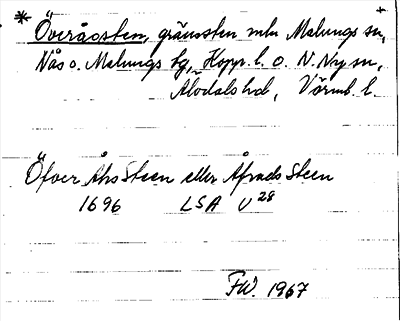 * Överåosten, gränssten mln Malungs sn,
Nås o. Malungs tg, Kopp. l. o. N. Ny sn,
Älvdals hd, Värml. l.
Öfver Åhs Steen eller Åfrads Steen
1696 LSA U 28
FW. 1967